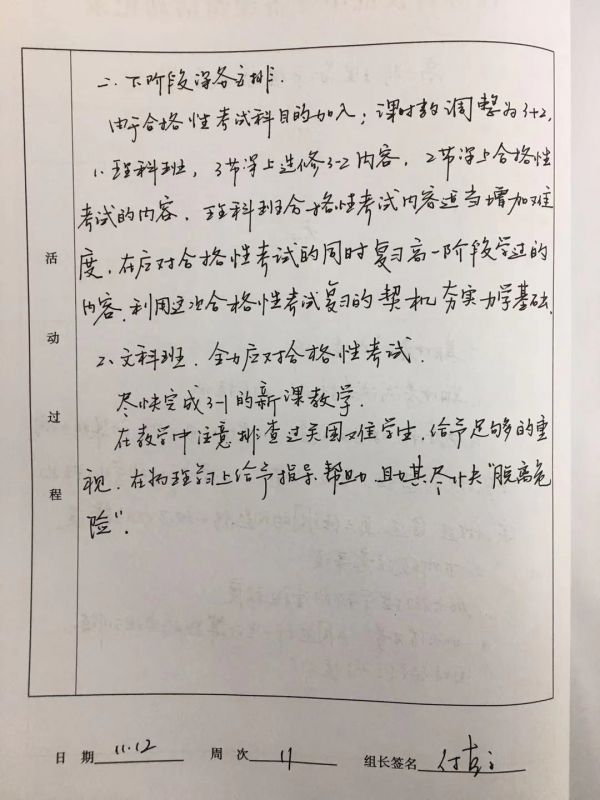 二、下阶段课务安排.
由于合格性考试科目的加入，课时数调整为3+2.
1、理科班，3节课上选修3-2内容，2节课上合格性
考试的内容．理科班合格性考试内容适当增加难
度．在应对合格性考试的同时复习高一阶段学过的
内容．利用这次合格性考试复习的契机夯实力学基础.
2、文科班．全力应对合格性考试．
尽快完成3-1的新课教学.
在教学中注意排查过关困难学生，给予足够的重
视．在物理学习上给予指导、帮助，助其尽快“脱离危
险”．
活动过程
日 期 11.12 周 次 11 组长签名